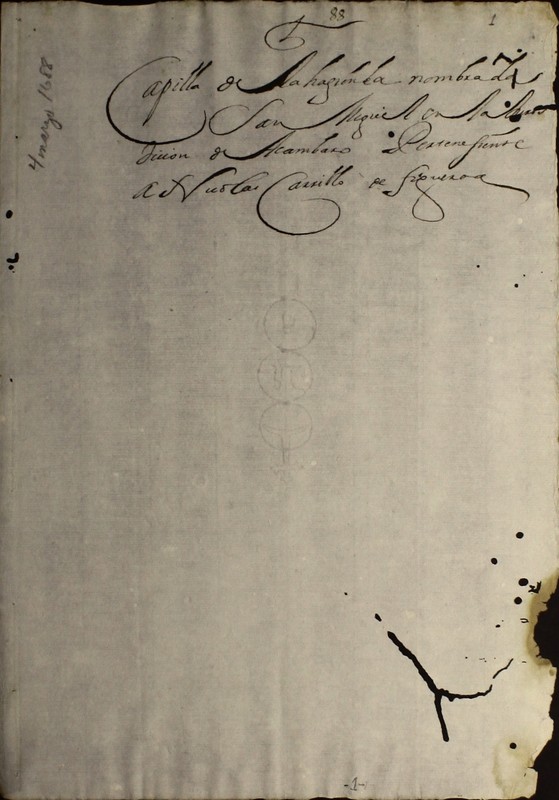 88
1
Capilla de la hazienda nombrada
San Miguel en la Juris
dicion de Acambaro Pertenesiente
A Nicolas Carrillo de figueroa
4 marzo 1688
-1-